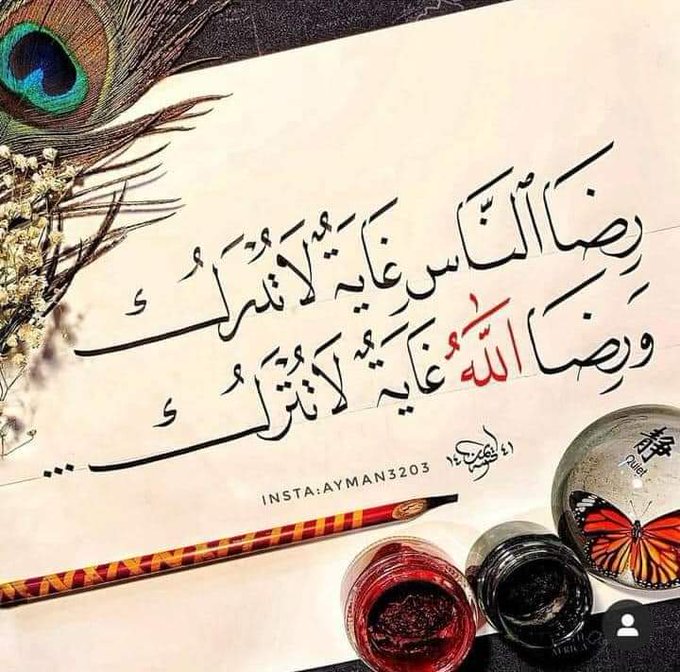 رِضَا ٱلنَّاسِ غَايَةٌ لَا تُدْرَكُ
وَرِضَا اللَّهُ غَايَةٌ لَا تُتْرَكُ...
١٤٤١
INSTA:AYMAN3203
靜
Quiet